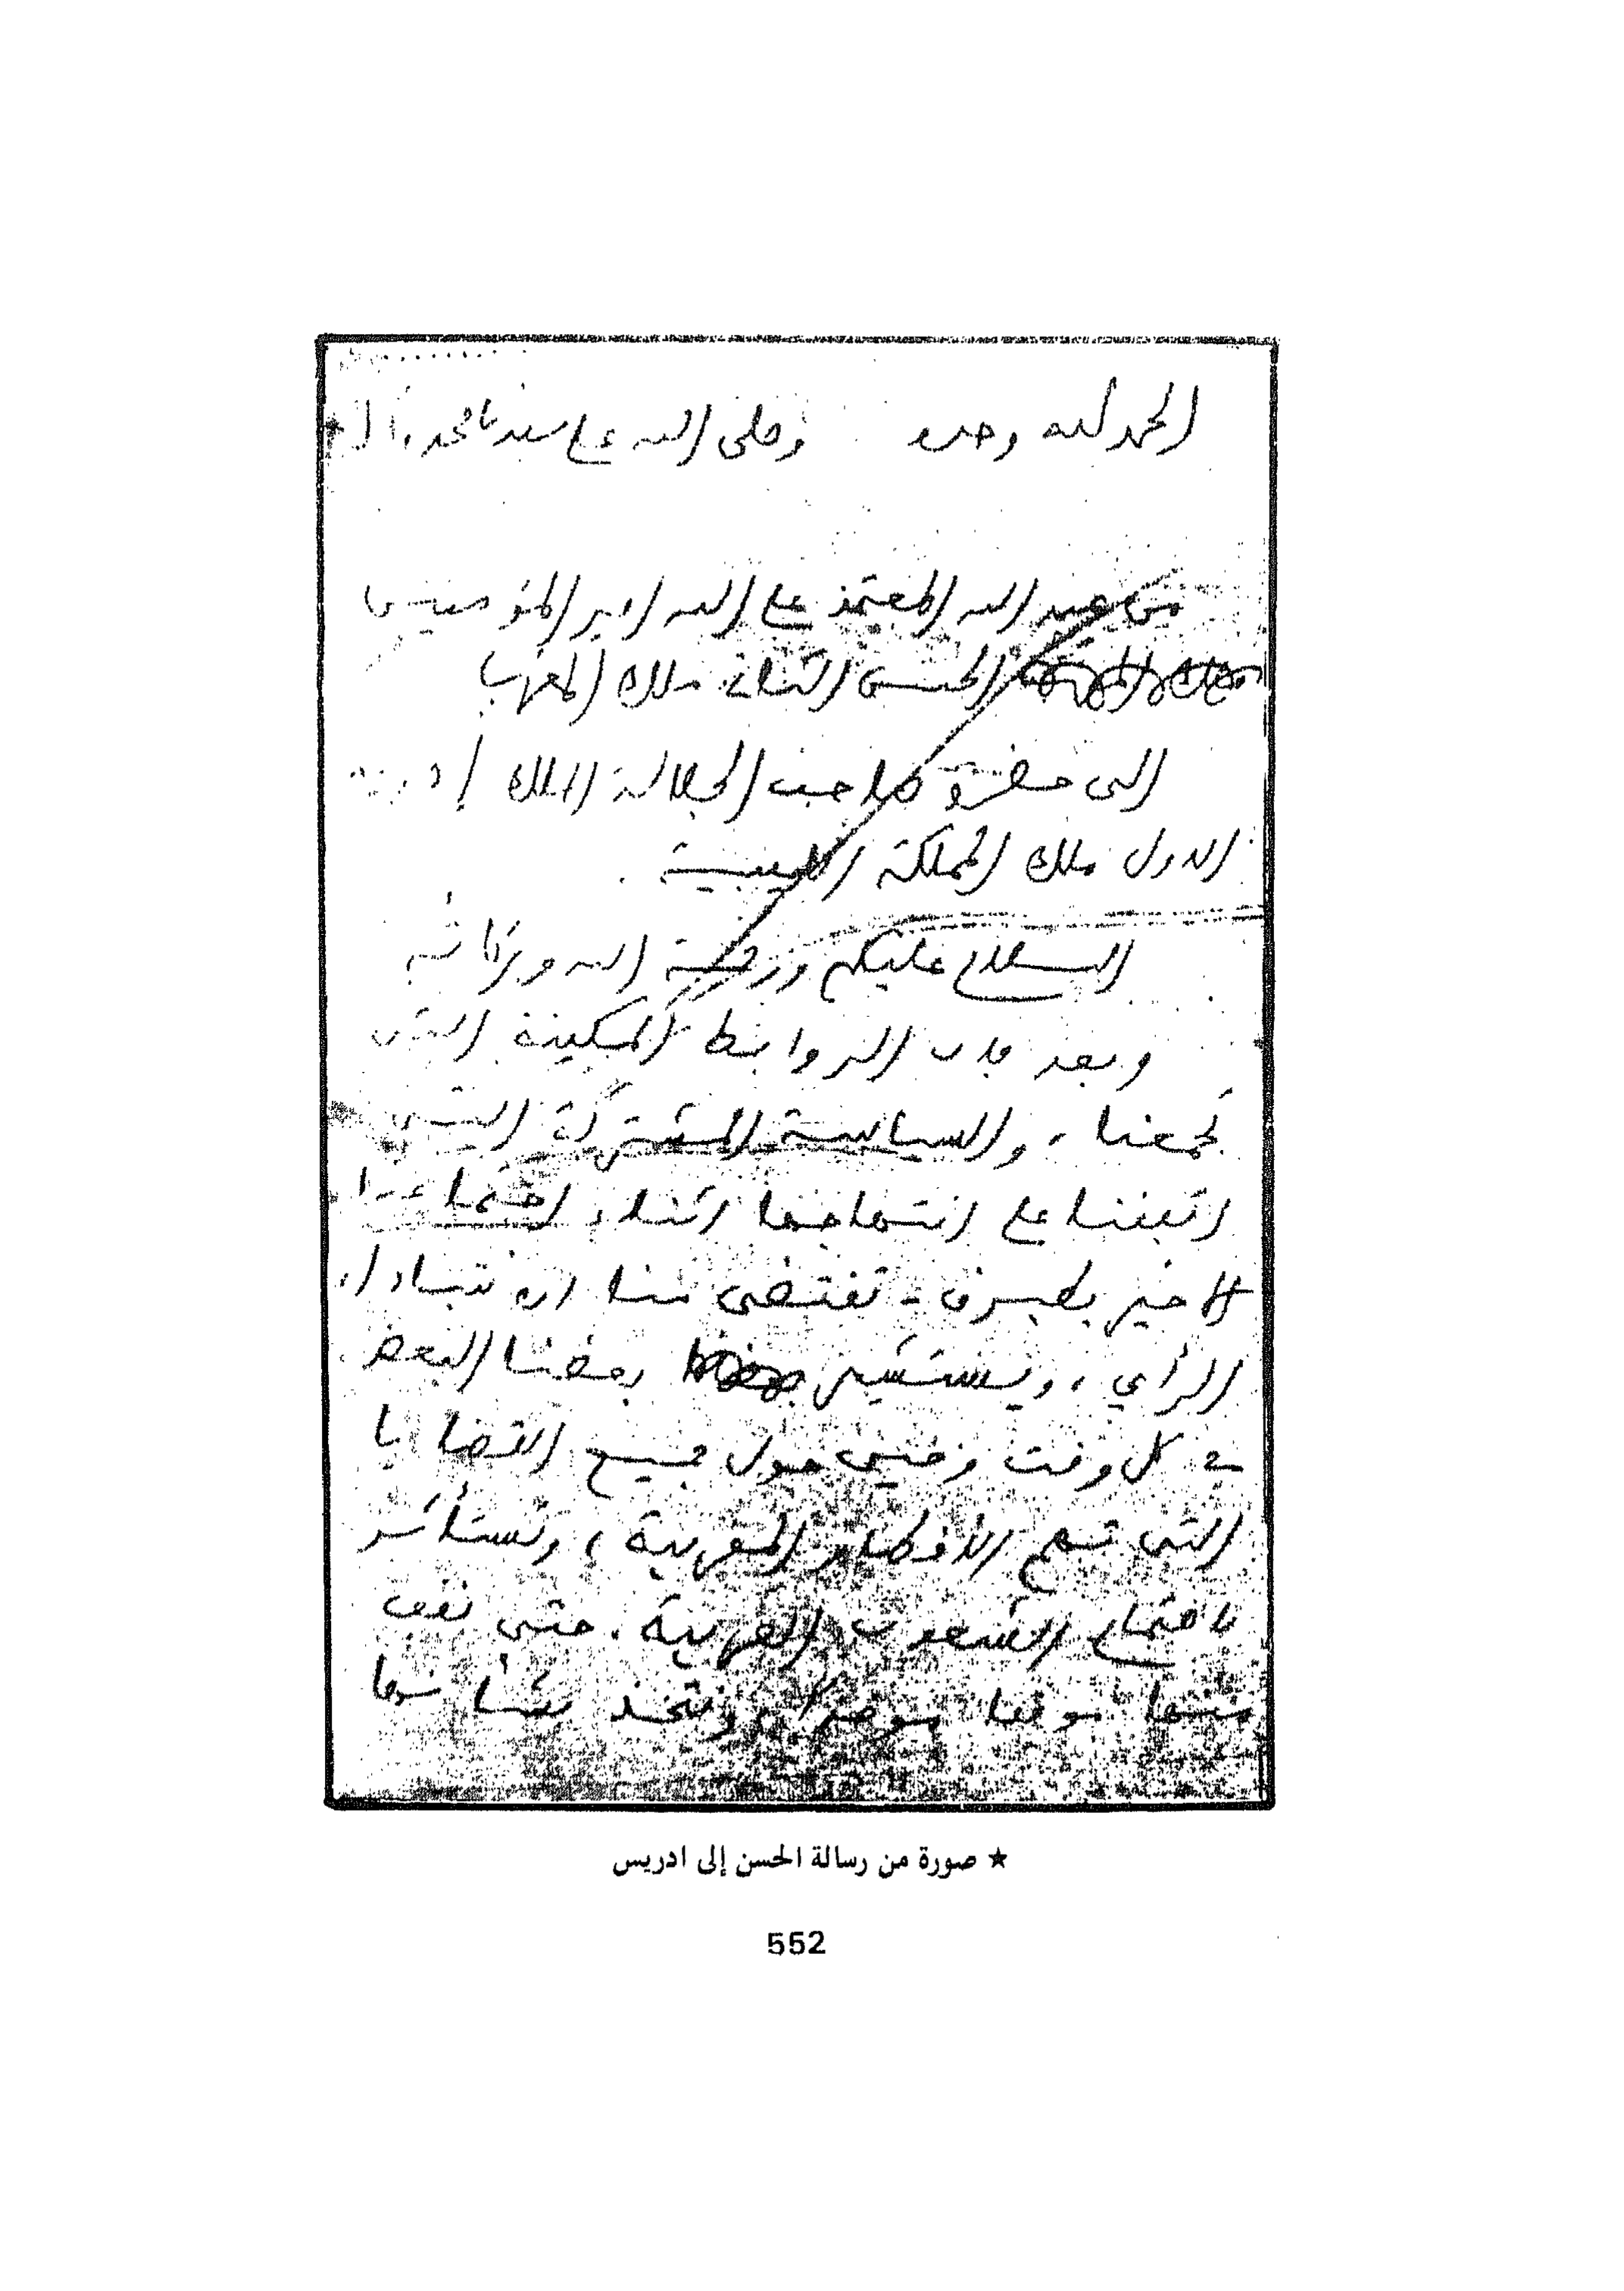 الحمد لله وحده وصلى الله على سيدنا محمد وآله
من عبد الله المعتمد على الله امير المؤمنين
الحسن الثاني ملك المغرب
الى حضرة صاحب الجلالة الملك إدريس
الاول ملك المملكة الليبية
السلام عليكم ورحمة الله وبركاته
وبعد فان الروابط المكينة التي
تجمعنا، والسياسة المشتركة التي
اتفقنا على انتهاجها اثناء اجتماعنا
الاخير بطبرق - تقتضى منا ان نتبادل
الرأي، ونستشير بعضنا البعض
في كل وقت وحين حول جميع القضايا
التى تهم الأقطار المغربية، وتستأثر
باهتمام الشعوب العربية. حتى نقف
منها موقفا موحدا ونتخذ بشأنها
★ صورة من رسالة الحسن إلى ادريس
552